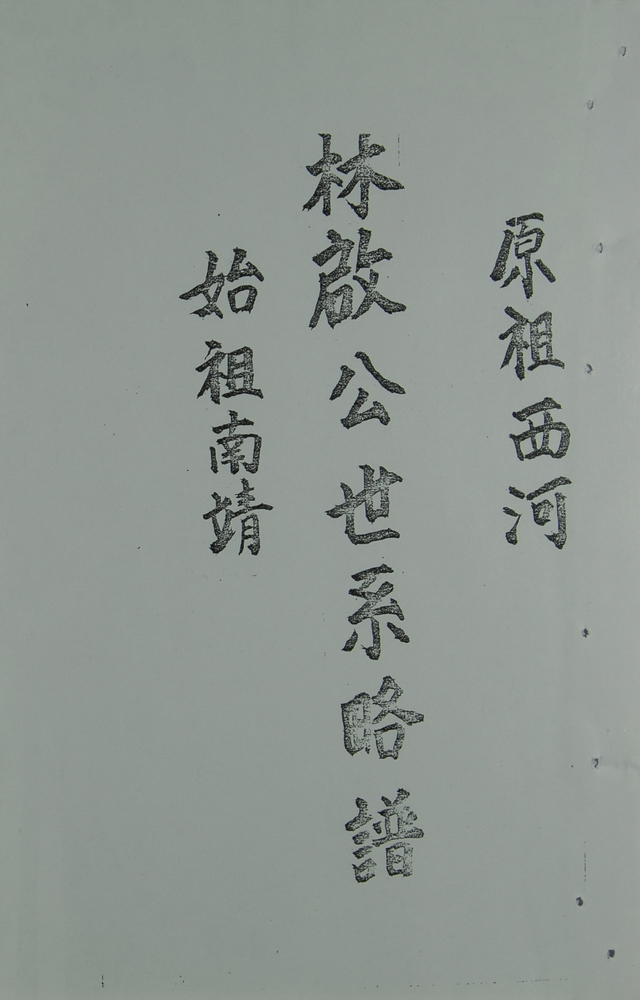 原祖西河
林啟公世系略譜
始祖南靖